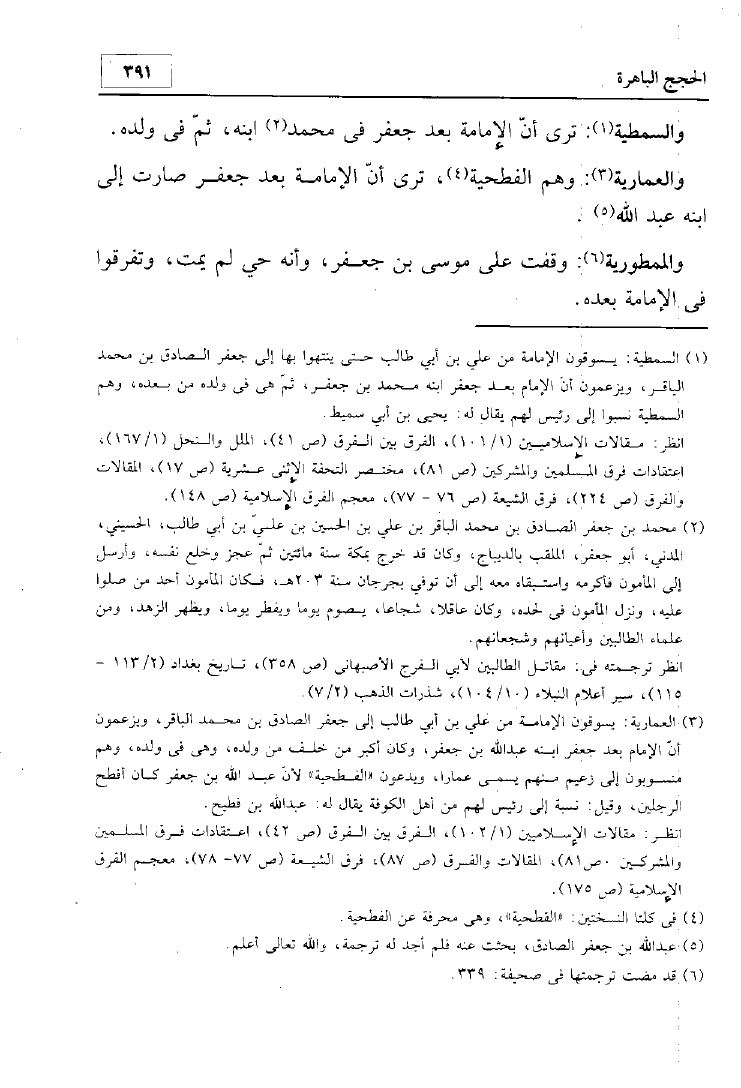 الحجج الباهرة
٣٩١
والسمطية(١): ترى أنّ الإمامة بعد جعفر فى محمد(٢) ابنه، ثمّ فى ولده.
والعمارية(٣): وهم الفطحية(٤)، ترى أنّ الإمامة بعد جعفر صارت إلى
ابنه عبد الله(٥) .
والممطورية(٦): وقفت على موسى بن جعفر، وأنه حي لم يمت، وتفرقوا
فى الإمامة بعده.
(١) السمطية: يسوقون الإمامة من علي بن أبي طالب حتى ينتهوا بها إلى جعفر الصادق بن محمد
الباقر، ويزعمون أنّ الإمام بعد جعفر ابنه محمد بن جعفر، ثمّ هى فى ولده من بعده، وهم
السمطية نسبوا إلى رئيس لهم يقال له: يحيى بن أبي سميط.
انظر: مقالات الإسلاميين (١/١٠١)، الفرق بين الفرق (ص ٤١)، الملل والنحل (١/١٦٧)،
اعتقادات فرق المسلمين والمشركين (ص ٨١)، مختصر التحفة الإثنى عشرية (ص ١٧)، المقالات
والفرق (ص ٢٢٤)، فرق الشيعة (ص ٧٦ – ٧٧)، معجم الفرق الإسلامية (ص ١٤٨).
(٢) محمد بن جعفر الصادق بن محمد الباقر بن علي بن الحسين بن عليّ بن أبي طالب، الحسيني،
المدني، أبو جعفر، الملقب بالديباج، وكان قد خرج بمكة سنة مائتين ثمّ عجز وخلع نفسه، وأرسل
إلى المأمون فأكرمه واستبقاه معه إلى أن توفي بجرجان سنة ٢٠٣هـ، فكان المأمون أحد من صلوا
عليه، ونزل المأمون فى لحده، وكان عاقلا، شجاعا، يصوم يوما ويفطر يوما، ويظهر الزهد، ومن
علماء الطالبين وأعيانهم وشجعانهم.
انظر ترجمته فى: مقاتل الطالبين لأبي الفرج الأصبهانى (ص ٣٥٨)، تاريخ بغداد (٢/ ١١٣ –
١١٥)، سير أعلام النبلاء (١٠/ ١٠٤)، شذرات الذهب (٢/ ٧).
(٣) العمارية: يسوقون الإمامة من علي بن أبي طالب إلى جعفر الصادق بن محمد الباقر، ويزعمون
أنّ الإمام بعد جعفر ابنه عبدالله بن جعفر، وكان أكبر من خلف من ولده، وهى فى ولده، وهم
منسوبون إلى زعيم منهم يسمى عمارا، ويدعون «الفطحية» لأنّ عبد الله بن جعفر كان أفطح
الرجلين، وقيل: نسبة إلى رئيس لهم من أهل الكوفة يقال له: عبدالله بن فطيح.
انظر: مقالات الإسلاميين (١/ ١٠٢)، الفرق بين الفرق (ص ٤٢)، اعتقادات فرق المسلمين
والمشركين ٠ص٨١)، المقالات والفرق (ص ٨٧)، فرق الشيعة (ص ٧٧- ٧٨)، معجم الفرق
الإسلامية (ص ١٧٥).
(٤) فى كلتا النسختين: «القطحية»، وهى محرفة عن الفطحية.
(٥) عبدالله بن جعفر الصادق، بحثت عنه فلم أجد له ترجمة، والله تعالى أعلم.
(٦) قد مضت ترجمتها فى صحيفة: ٣٣٩.